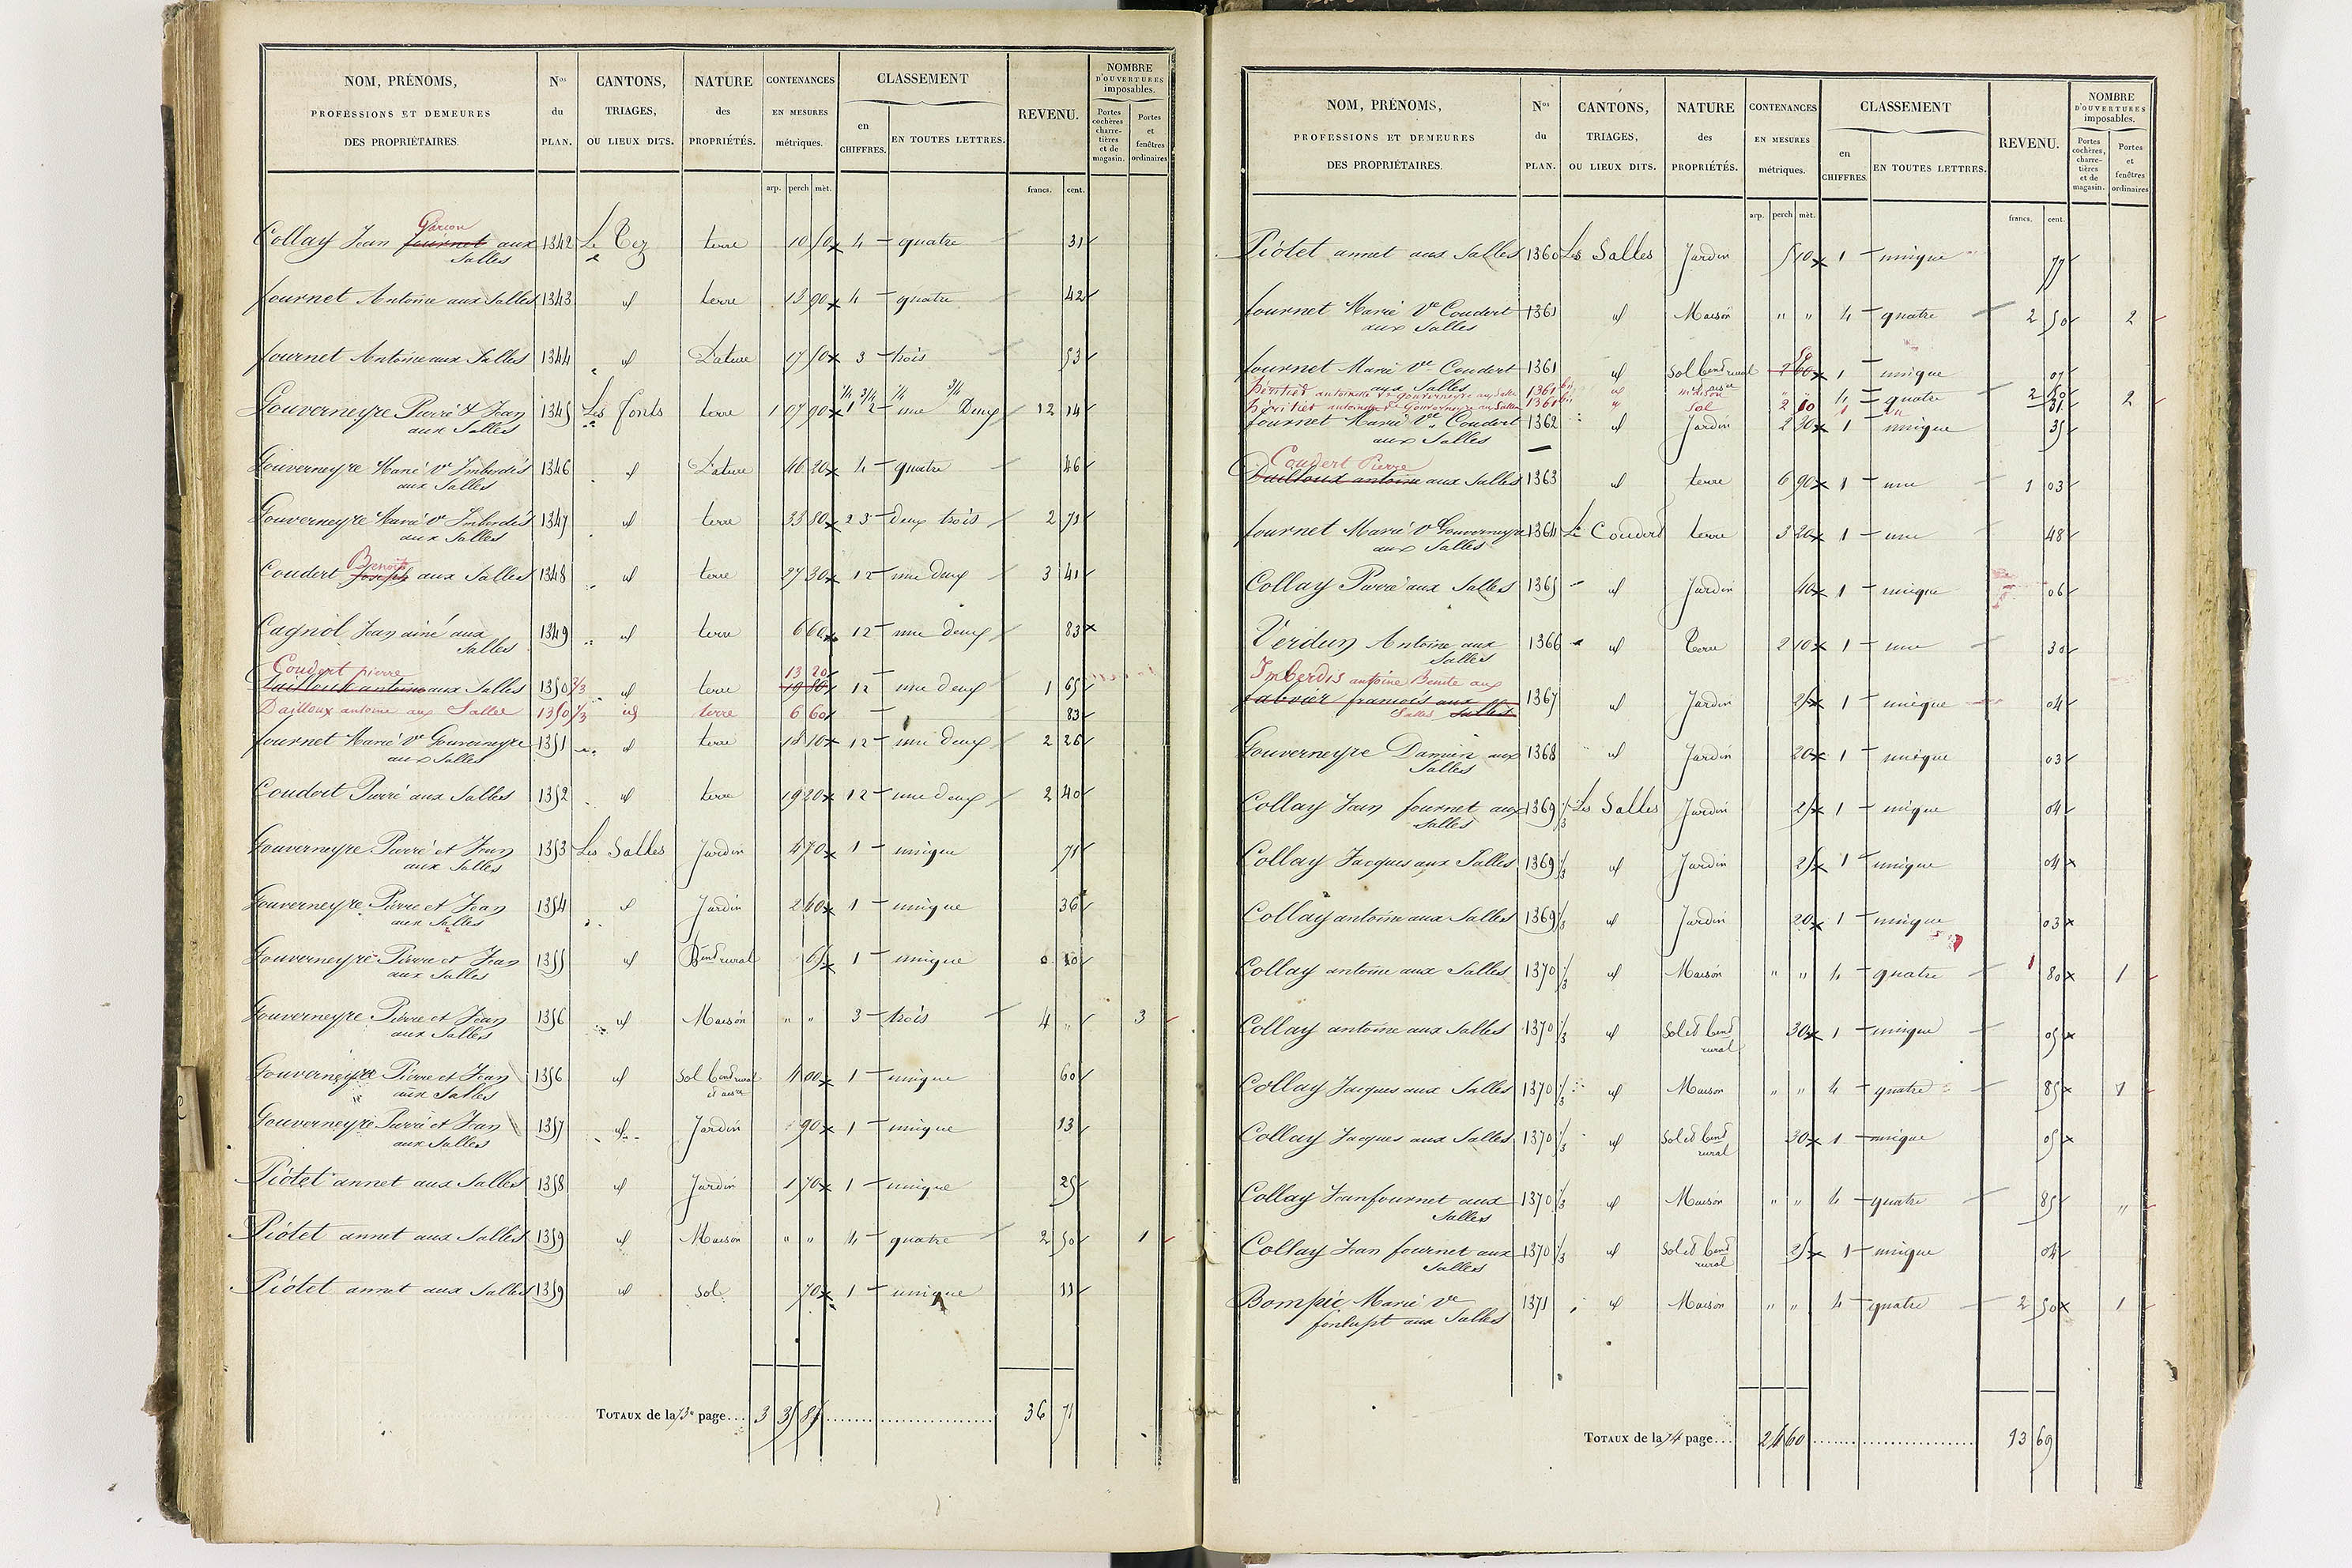 NOM, PRÉNOMS, PROFESSIONS ET DEMEURES DES PROPRIÉTAIRES. Nos du PLAN. CANTONS, TRIAGES, OU LIEUX DITS. NATURE des PROPRIÉTÉS. CONTENANCES EN MESURES métriques. CLASSEMENT en CHIFFRES. EN TOUTES LETTRES. REVENU. NOMBRE D'OUVERTURES imposables. Portes cochères charretières et de magasin. Portes et fenêtres ordinaires
arp. perch mèt. francs. cent.
Garion
Collay Jean fournet aux 1342 Le Cez terre 10 50 4 quatre 31
Salles
fournet Antoine aux Salles 1343 id terre 13 90 4 quatre 42
fournet Antoine aux Salles 1344 id Pature 17 50 3 trois 53
1/4 3/4 1/4 3/4
Gouverneyre Pierre & Jean 1345 Les fonts terre 1 07 90 1 2 une Deux 12 14
aux Salles
Gouverneyre Marie Ve Imberdis 1346 id Pature 46 20 4 quatre 46
aux Salles
Gouverneyre Marie Ve Imberdis 1347 id terre 33 80 2 3 deux trois 2 71
aux Salles
Benoit
Coudert Joseph aux Salles 1348 id terre 27 30 1 2 une deux 3 41
Cagnol Jean ainé aux 1349 id terre 6 60 1 2 une deux 83
Salles
Coudert pierre 13 20
Dailloux antoine aux Salles 1350 2/3 id terre 19 80 1 2 une deux 1 65
Dailloux antoine aux Salles 1350 1/3 id terre 6 60 83
fournet Marie Ve Gouverneyre 1351 id terre 18 10 1 2 une deux 2 26
aux Salles
Coudert Pierre aux Salles 1352 id terre 19 20 1 2 une deux 2 40
Gouverneyre Pierre et Jean 1353 Les Salles Jardin 4 70 1 unique 71
aux Salles
Gouverneyre Pierre et Jean 1354 id Jardin 2 40 1 unique 36
aux Salles
Gouverneyre Pierre et Jean 1355 id Bent rural 65 1 unique 0 10
aux Salles
Gouverneyre Pierre et Jean 1356 id Maison " " 3 trois 4 " 3
aux Salles
Gouverneyre Pierre et Jean 1356 id Sol bent rural 4 00 1 unique 60
aux Salles et aire
Gouverneyre Pierre et Jean 1357 id Jardin 90 1 unique 13
aux Salles
Piotet annet aux Salles 1358 id Jardin 1 70 1 unique 25
Piotet annet aux Salles 1359 id Maison " " 4 quatre 2 50 1
Piotet annet aux Salles 1359 id Sol 70 1 unique 11
TOTAUX de la 73e page.... 3 35 85 36 71
NOM, PRÉNOMS, PROFESSIONS ET DEMEURES DES PROPRIÉTAIRES. Nos du PLAN. CANTONS, TRIAGES, OU LIEUX DITS. NATURE des PROPRIÉTÉS. CONTENANCES EN MESURES métriques. CLASSEMENT en CHIFFRES EN TOUTES LETTRES. REVENU. NOMBRE D'OUVERTURES imposables. Portes cochères, charretières et de magasin. Portes et fenêtres ordinaires
arp. perch mèt. francs. cent.
Piotet annet aux Salles 1360 Les Salles Jardin 5 10 1 unique 77
fournet Marie Ve Coudert 1361 id Maison " " 4 quatre 2 50 2
aux Salles
fournet Marie Ve Coudert 1361 id Sol bent rural 1 unique 07
aux Salles
héritier antoinette Ve gouverneyre aux Salles 1361 bis id maison " 4 quatre 2 50 2
héritier antoinette Ve Gouverneyre aux Salles 1361 bis id Sol 2 10 1 un 31
fournet Marie Ve Coudert 1362 id Jardin 2 30 1 unique 35
aux Salles
Coudert Pierre
Dailloux antoine aux Salles 1363 id terre 6 90 1 une 1 03
fournet Marie Ve Gouverneyre 1364 Le Coudert terre 3 20 1 une 48
aux Salles
Collay Pierre aux Salles 1365 id Jardin 40 1 unique 06
Verdun Antoine aux 1366 id Terre 2 10 1 une 30
Salles
Imberdis antoine Benite aux
fabrier francois aux 1367 id Jardin 25 1 unique 04
Salles Salles
Gouverneyre Damien aux 1368 id Jardin 20 1 unique 03
Salles
Collay Jean fournet aux 1369 1/3 Les Salles Jardin 25 1 unique 04
Salles
Collay Jacques aux Salles 1369 1/3 id Jardin 25 1 unique 04
Collay antoine aux Salles 1369 1/3 id Jardin 20 1 unique 03
Collay antoine aux Salles 1370 1/3 id Maison " " 4 quatre 1 80 1
Collay antoine aux Salles 1370 1/3 id Sol et bent 30 1 unique 05
rural
Collay Jacques aux Salles 1370 1/3 id Maison " " 4 quatre 85 1
Collay Jacques aux Salles 1370 1/3 id Sol et bent 30 1 unique 05
rural
Collay Jean fournet aux 1370 1/3 id Maison " " 4 quatre 85 "
Salles
Collay Jean fournet aux 1370 1/3 id Sol et bent 25 1 unique 04
Salles rural
Bompic Marie Ve 1371 id Maison " " 4 quatre 2 50 1
fonlupt aux Salles
TOTAUX de la 74 page... 24 60 13 69